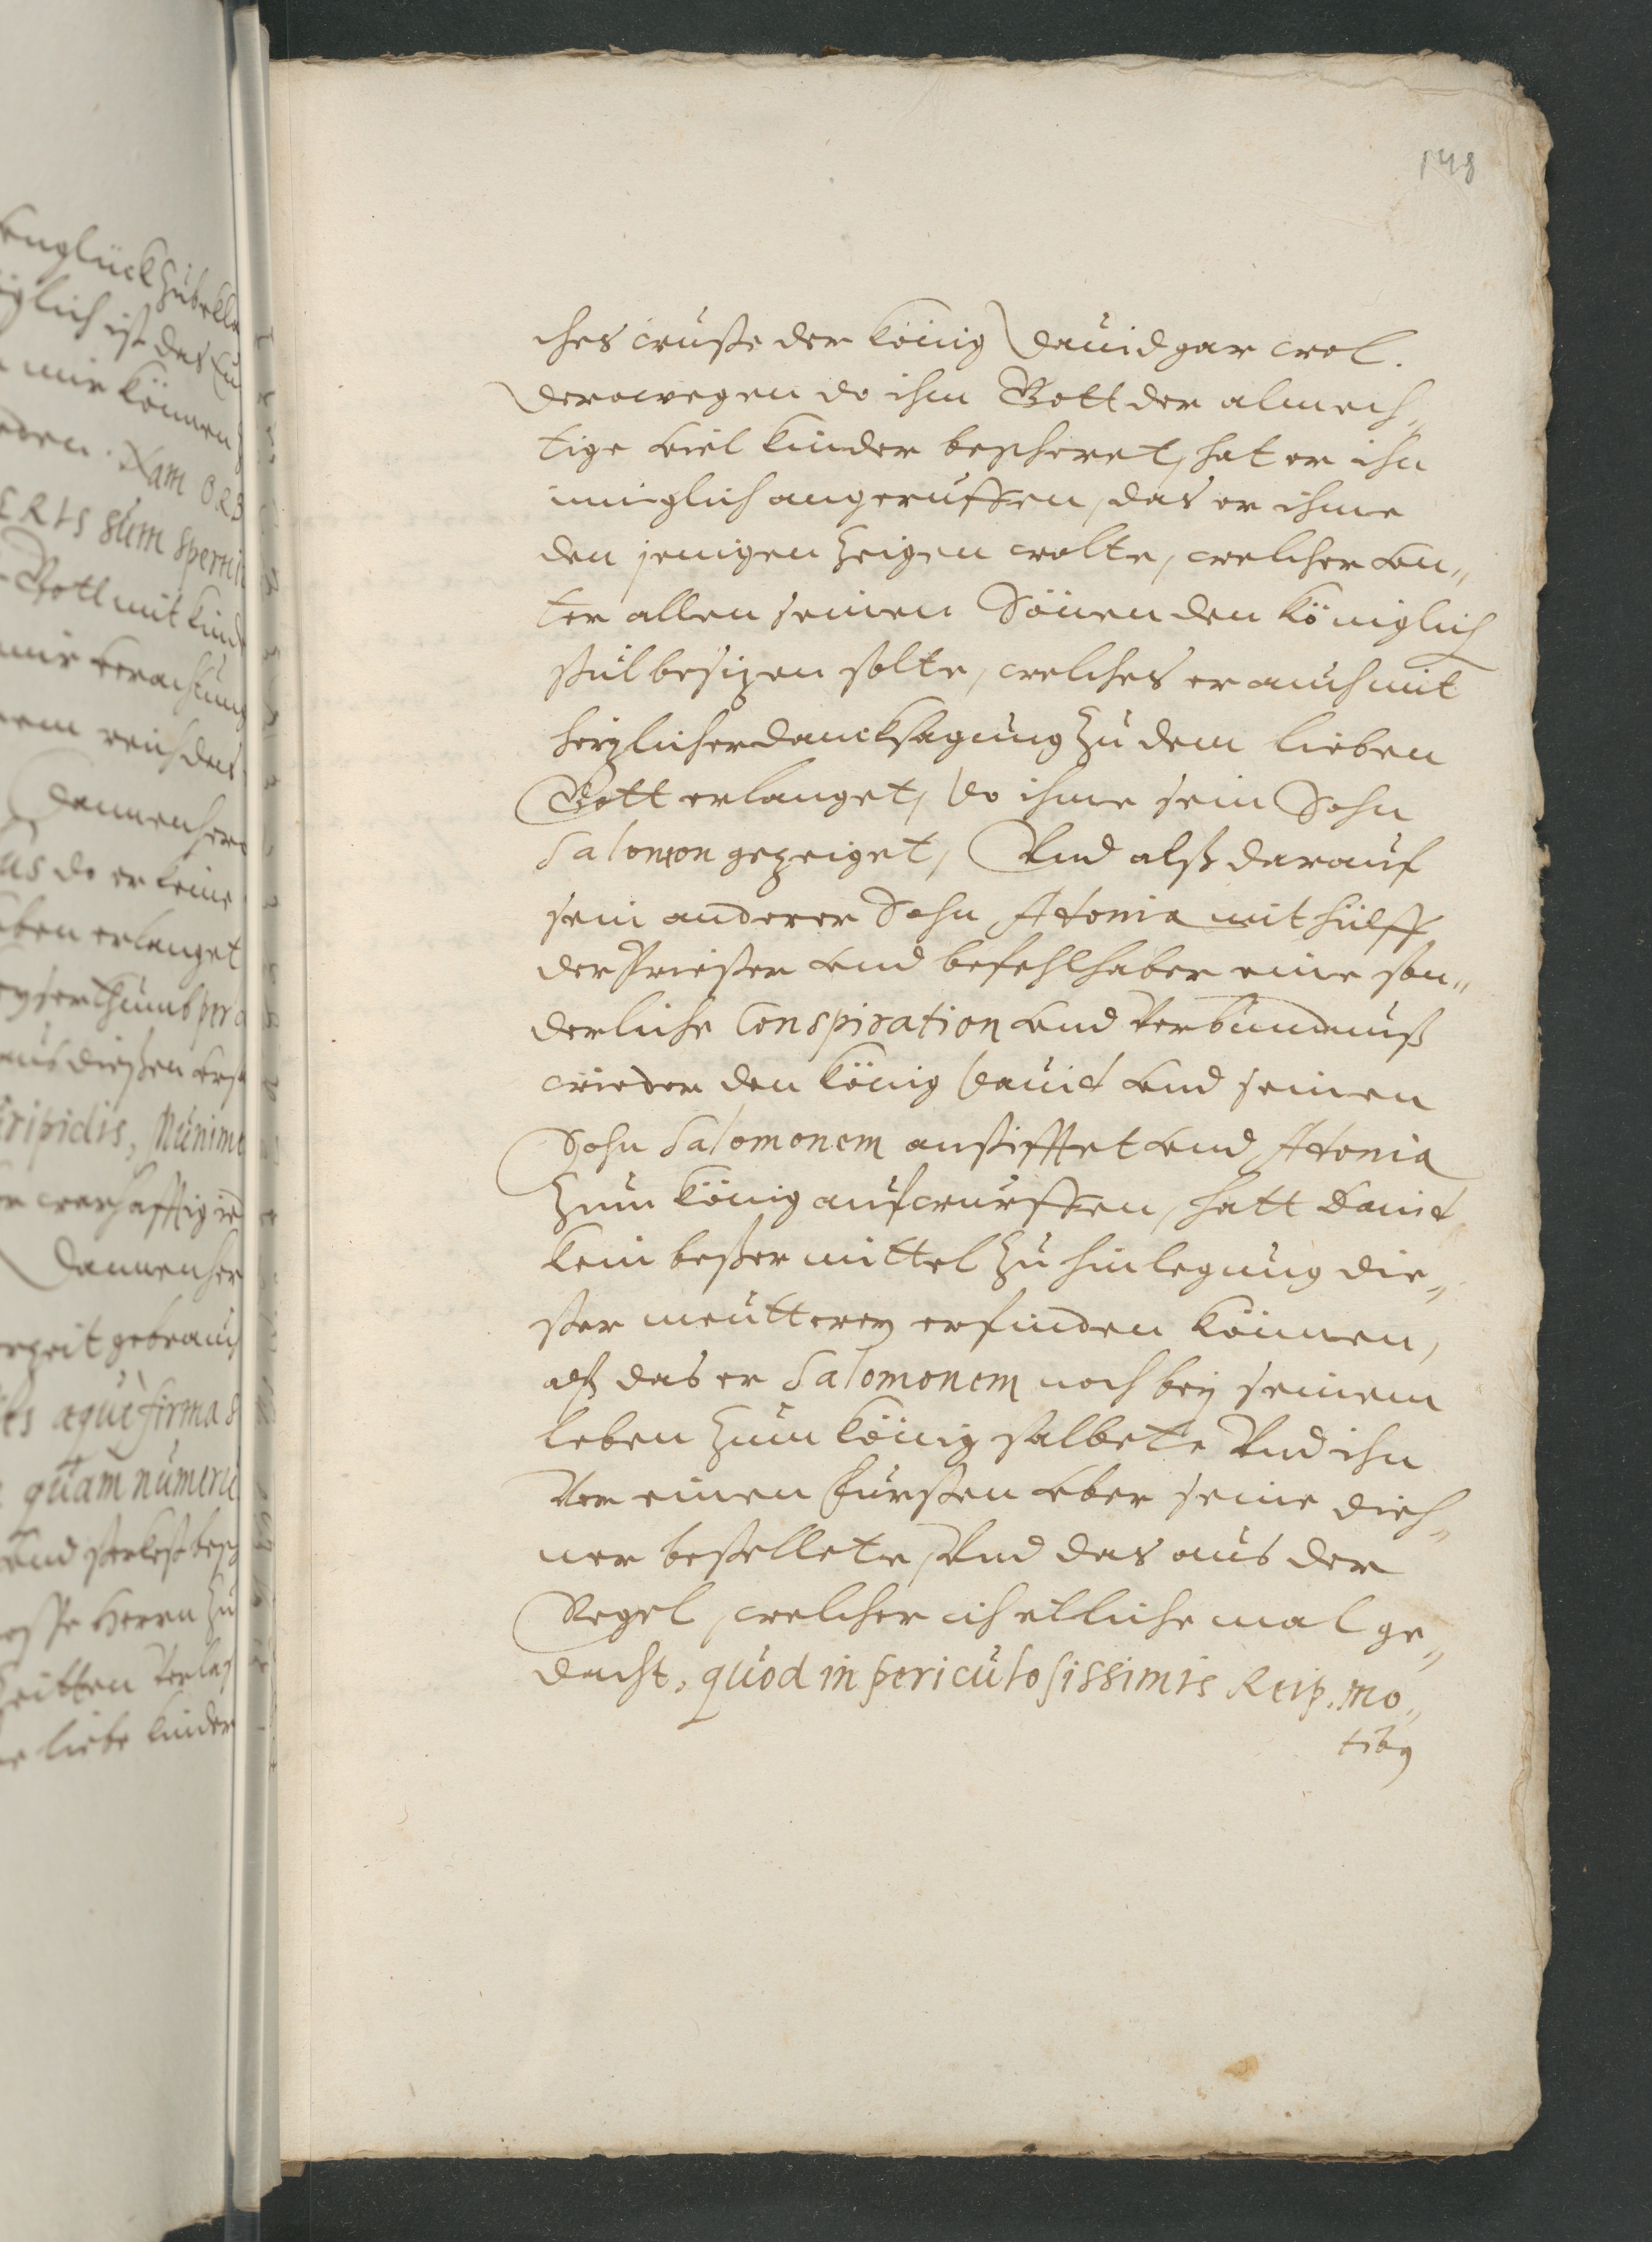 148
ches wuste der König Dauid gar wol.
Derowegen do ihm Gott der almech„
tige viel kinder bescheret, hat er ihn
inniglich angeruffen, das er ihme
den jenigen zeigen wolte, welcher vn„
ter allen seinen Sönen den Königlich
stul besizen solte, welches er auch mit
herzlicher dancksagung zu dem lieben
Gott erlanget, do ihme sein Sohn
Salomon gezeiget, Vnd alß darauf
sein anderer Sohn Adonia mit hülff
der Priester vnd befehlhaber eine son„
derliche Conspiration vnd Verbündnuß
wieder den König Dauid vnd seinen
Sohn Salomonem anstifftet vnd Adonia
zum König aufwurffen, hatt Dauid
kein beßer mittel zu hinlegung die„
ser meutterey erfinden können,
alß das er Salomonem noch bey seinem
leben zum König salbete Vnd ihn
Vor einen Fürsten vber seine dieh„
ner bestellete, Vnd das aus der
Regel, welcher ich etliche mal ge„
dacht, quod in periculosissimis Reip. mo„
tibus